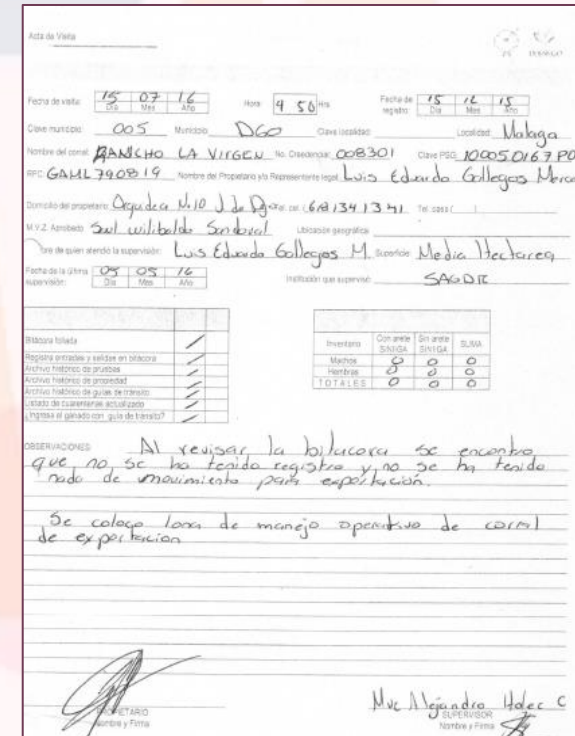 Acta de Visita
DURANGO
Fecha de visita: 15 07 16 Hora 9 50 Hrs Fecha de registro: 15 12 15
Día Mes Año Día Mes Año
Clave municipio 005 Municipio DGO Clave localidad: Localidad: Malaga
Nombre del corral: RANCHO LA VIRGEN No. Credencial: 008301 Clave PSG: 10005016 7 P0
RFC: GAML 790819 Nombre del Propietario y/o Representente legal: Luis Eduardo Gallegos Merca
Domicilio del propietario: N.10 J de Tel. cel. (618 1341341 Tel. casa: (
M.V.Z. Aprobado: Saul wilibaldo Sandoval Ubicación geográfica:
bre de quien atendió la supervisión: Luis Eduardo Gallegos M. Superficie Media Hectarea
Fecha de la última supervisión: 09 05 16 Institución que supervisó:
Día Mes Año
Bitácora foliada
Registra entradas y salidas en bitácora
Archivo histórico de pruebas
Archivo histórico de propiedad
Archivo histórico de guías de tránsito
Listado de cuarentenas actualizado
¿Ingresa el ganado con guía de tránsito?
Inventario Con arete SINIGA Sin arete SINIGA SUMA
Machos 0 0 0
Hembras 0 0 0
TOTALES 0 0 0
OBSERVACIONES: Al revisar la bitacora se encontro
que no se ha tenido registro y no se ha tenido
nada de movimiento para exportación.
Se coloco lona de manejo operativo de corral
de exportacion
PROPIETARIO
Nombre y Firma
Mvz Alejandro C
SUPERVISOR
Nombre y Firma